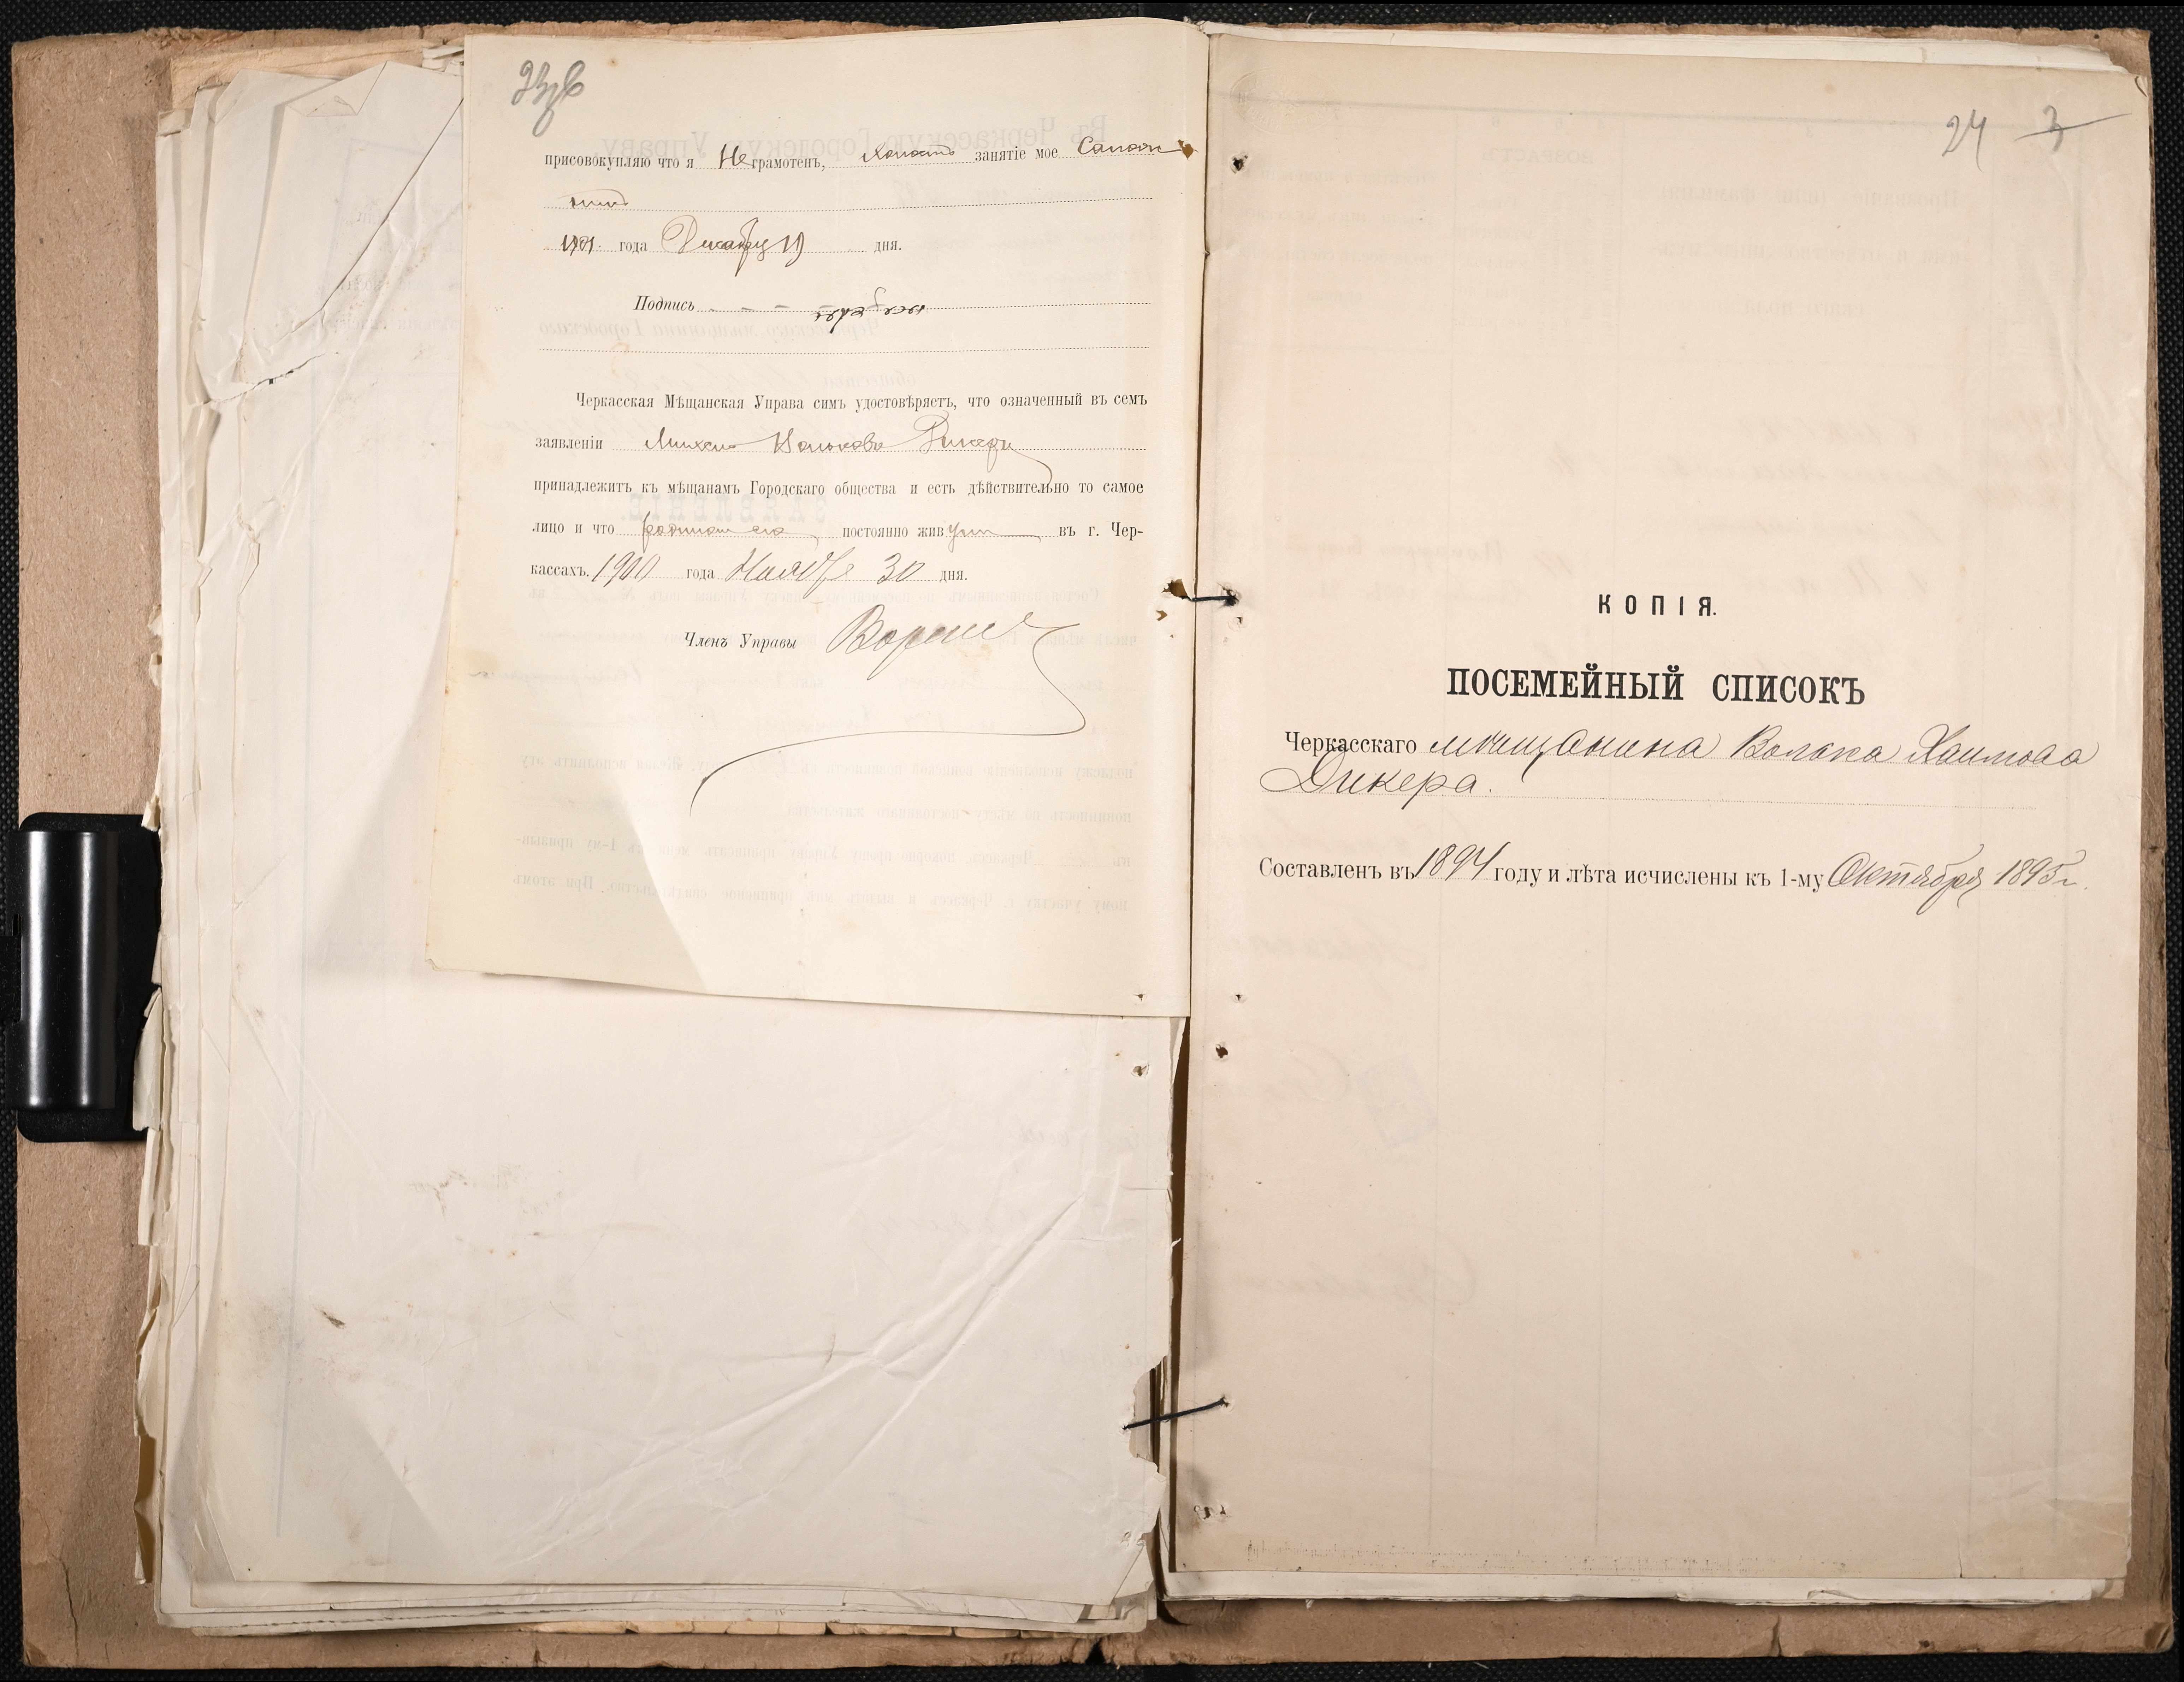 присовокупляю что я Неграмотенъ, холостъ занятіе мое Сапож
никъ
1901 года Декабря 19 дня.
Подпись
Черкасская Мѣщанская Управа симъ удостовѣряетъ, что означенный въ семъ
заявленіи Михель Вольковъ Дикеръ
принадлежитъ къ мѣщанамъ Городскаго общества и есть дѣйствительно то самое
лицо и что родители его постоянно живутъ въ г. Чер-
кассахъ. 1900 года Ноября 30 дня.
Членъ Управы
24 3
КОПІЯ.
ПОСЕМЕЙНЫЙ СПИСОКЪ
Черкасскаго мѣщанина Волька Хаимова
Дикера.
Составленъ въ 1894 году и лѣта исчислены къ 1-му Октября 1895 г.